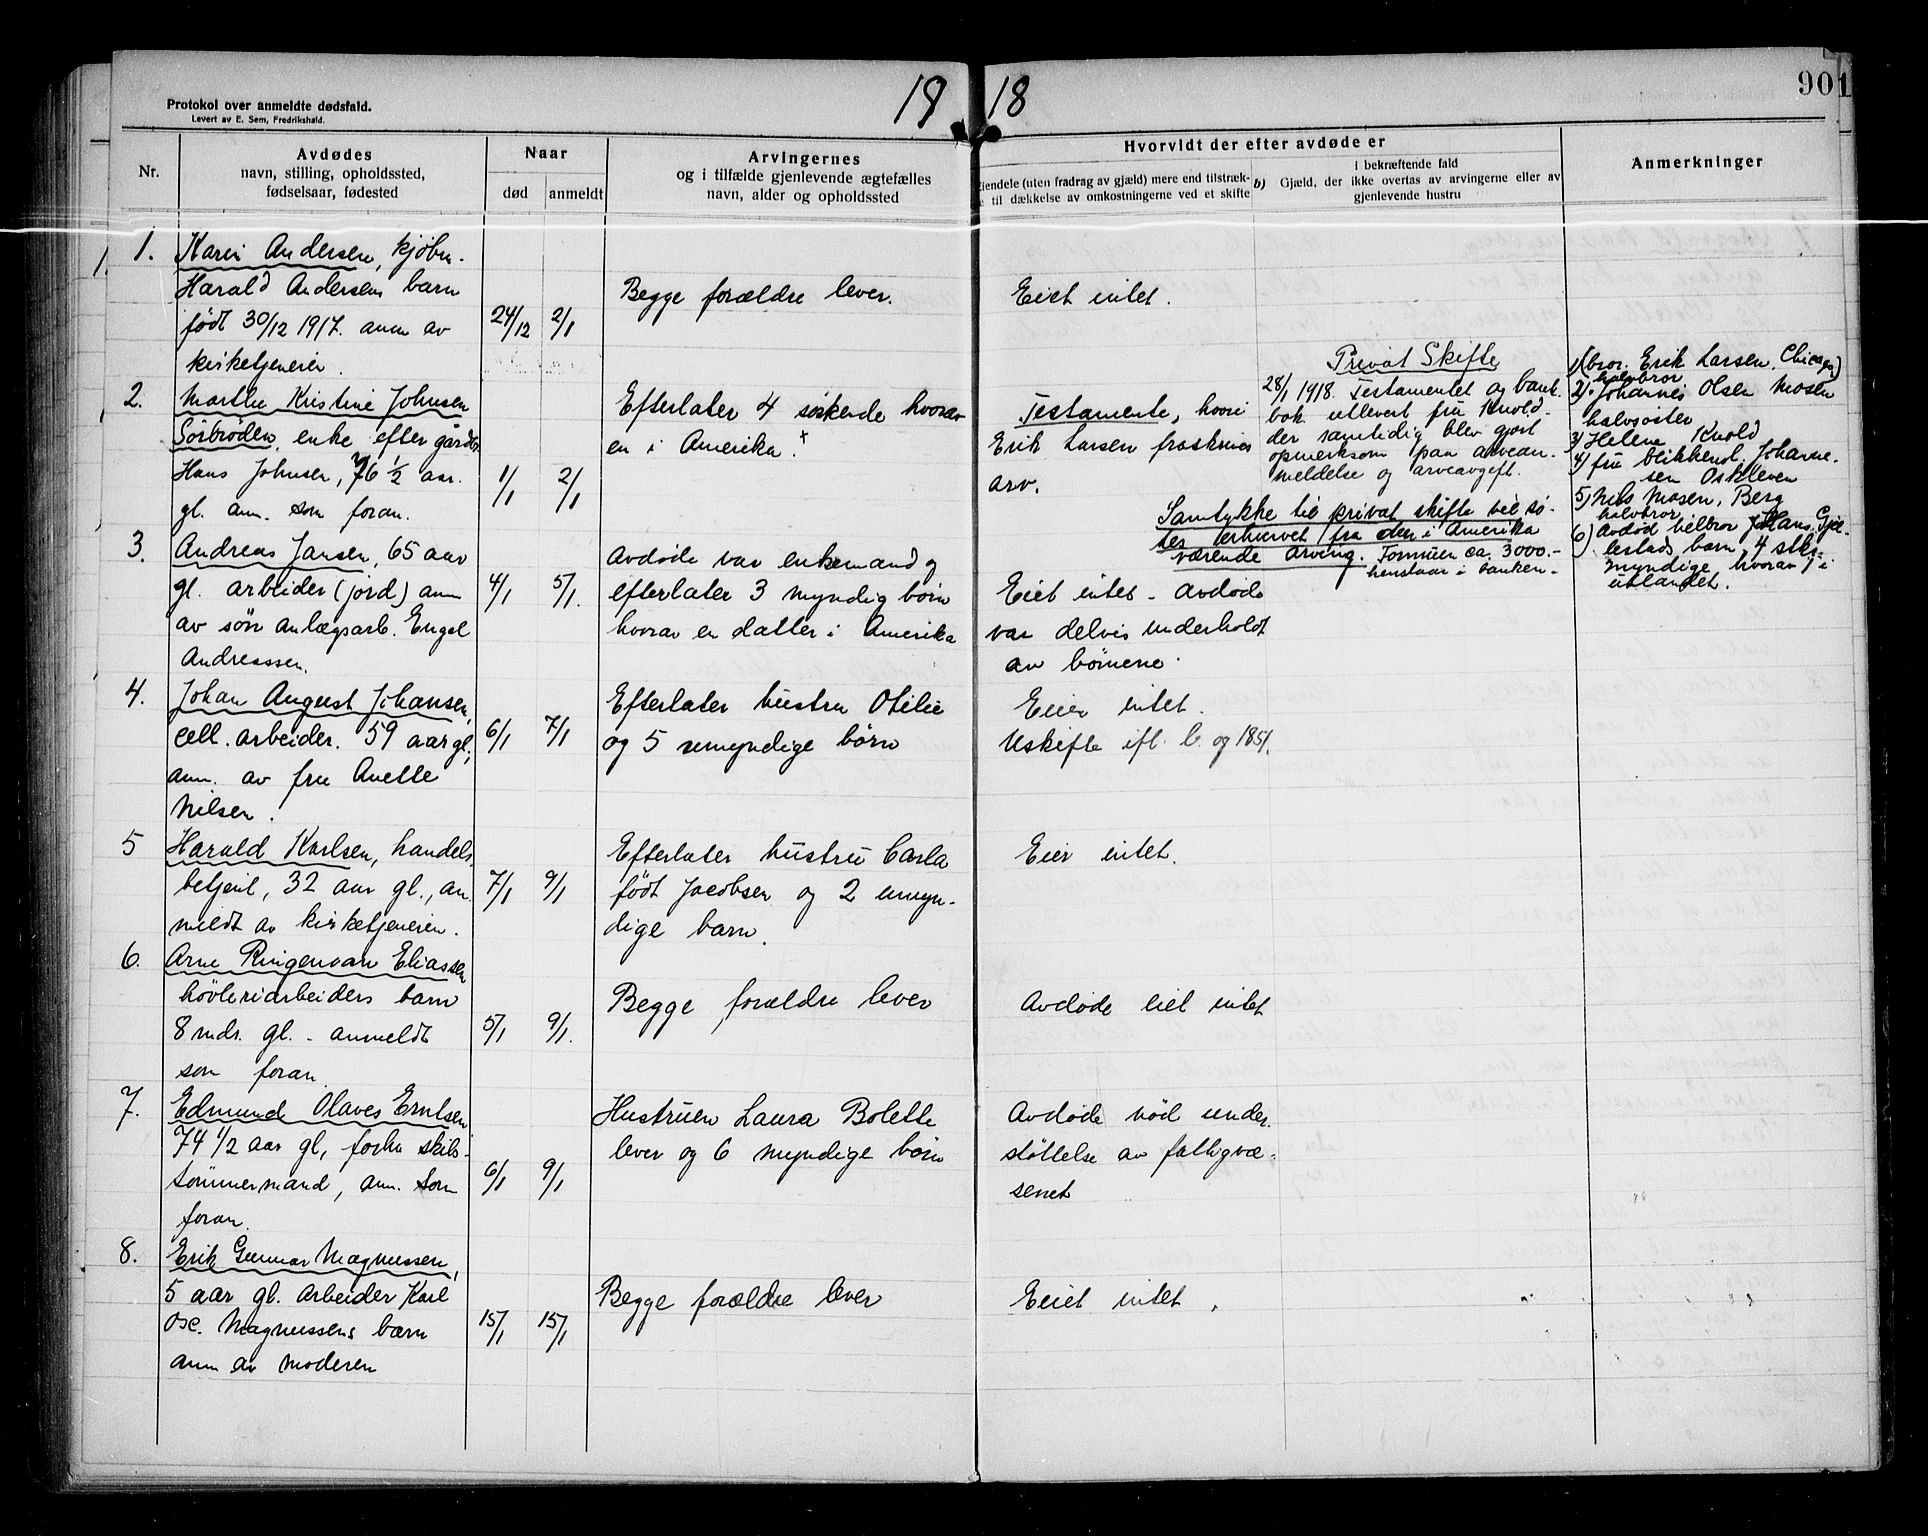 1918
901
Protokol over anmeldte dødsfald.
Levert av E. Sem, Fredrikshald.
Nr.
Avdødes
navn, stilling, opholdssted,
fødselsaar, fødested
Naar
død
anmeldt
Arvingernes
og i tilfælde gjenlevende ægtefælles
navn, alder og opholdssted
Hvorvidt der efter avdøde er
iendele (uten fradrag av gjæld) mere end tilstræk-
e til dækkelse av omkostningerne ved et skifte
b)
i bekræftende fald
Gjæld, der ikke overtas av arvingerne eller av
gjenlevende hustru
Anmerkninger
1.
Karin Andersen, kjøbm.
Harald Andersens barn
født 30/12 1917. anm av
kirketjeneren.
24/12
2/1
Begge forældre lever.
Eiet intet.
2.
Marthe Kristine Johnsen
Sørbrøden, enke efter gårdbr.
Hans Johnsen, 76 1/2 aar.
gl. anm. som foran.
1/1
2/1
Efterlater 4 søskende hvorav
en i Amerika. +
Testamente, hvori
Erik Larsen fraskrives
arv.
Privat Skifte
28/1 1918. Testamentet og bank
bok utlevert fru Knold.
der samtidig blev gjort
opmerksom paa arvean-
meldelse og arveavgift.
Samtykke til privat skifte vil sø-
kes erhvervet fra den i Amerika
værende arving. Formuen ca. 3000.-
henstaar i banken.-
1) (bror. Erik Larsen. Chicago)
halvbror
2) Johannes Olsen Mosen
halvsøster
3) Helene Knold
4) fru blikkensl. Johanne-
sen Oskleven
5) Nils Mosen, Berg
halvbror
6) Avdød hélbror Johans. Gjel-
lestads barn, 4 stk:
myndige, hvorav 1 i
utlandet.
3.
Andreas Jansen, 65 aar
gl. arbeider (jord) anm
av søn anlægsarb. Engel
Andreassen.
4/1
5/1.
Avdøde var enkemand og
efterlater 3 myndig børn
hvorav en datter i Amerika
Eiet intet - avdøde
var delvis underholdt
av børnene.
4.
Johan August Johansen,
cell. arbeider. 59 aar gl,
anm. av fru Anette
Nilsen.
6/1
7/1
Efterlater hustru Otilie
og 5 umyndige børn
Eier intet.
Uskifte ifl. b. og 1851.
5
Harald Karlsen, handels
betjent, 32 aar gl., an
meldt av kirketjeneren.
7/1
9/1
Efterlater hustru Carla
født Jacobsen og 2 umyn-
dige barn.
Eier intet.
6.
Arne Ringenvan Eliassen
høvleriarbeiders barn
8 mdr. gl. - anmeldt
som foran.
5/1
9/1.
Begge forældre lever
Avdøde eiet intet
7.
Edmund Olaves Erntsen
74 1/2 aar gl, forhv skibs-
tømmermand, anm. som
foran.
6/1
9/1
Hustruen Laura Bolette
lever og 6 myndige børn
Avdøde nød under.
støttelse av fattigvæ-
senet
8.
Erik Gunnar Magnussen,
5 aar gl. Arbeider Karl
Osc. Magnussens barn
anm av moderen
15/1
15/1
Begge forældre lever
Eiet intet.